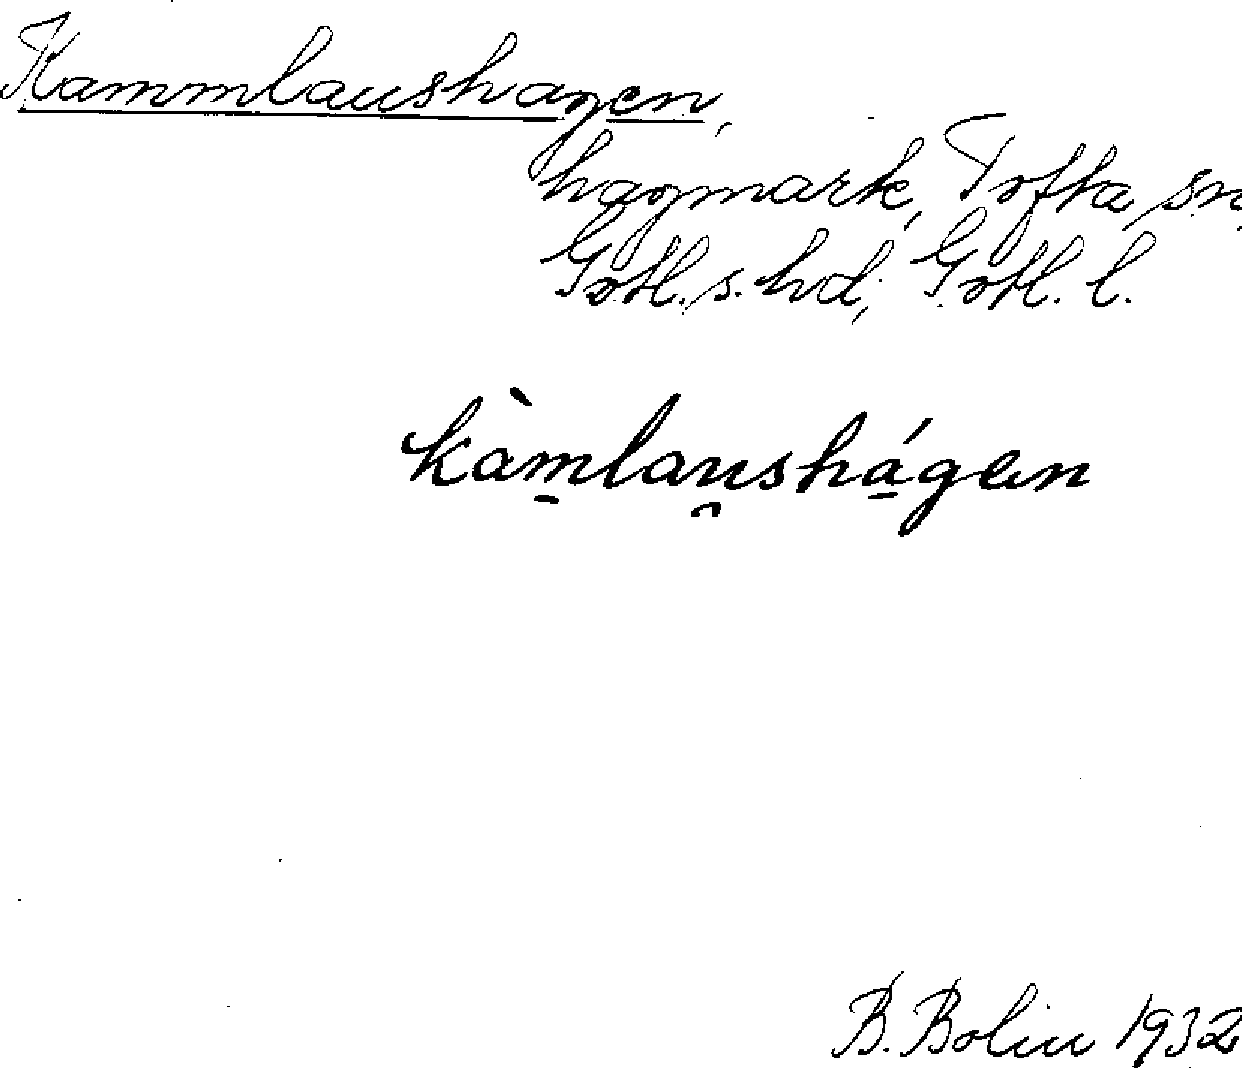 Kammlaushagen,
hagmark, Tofta sn,
Gotl. s. hd, Gotl. l.
kàm̱lau̯shá̱gen
B. Bolin 1932